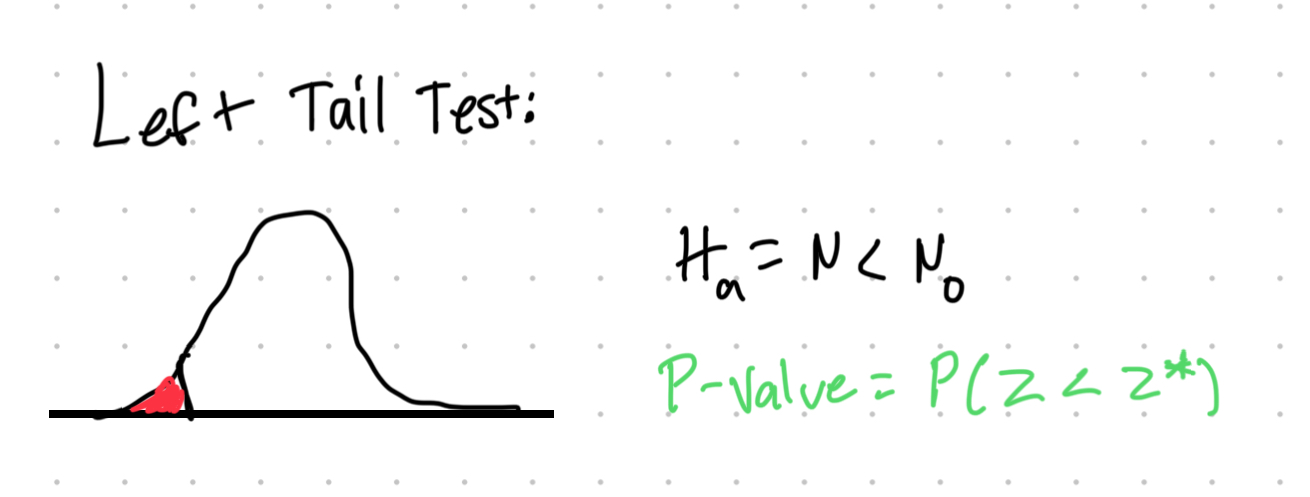 Left Tail Test:
Hₐ = N < N₀
P-value = P(Z < Z*)